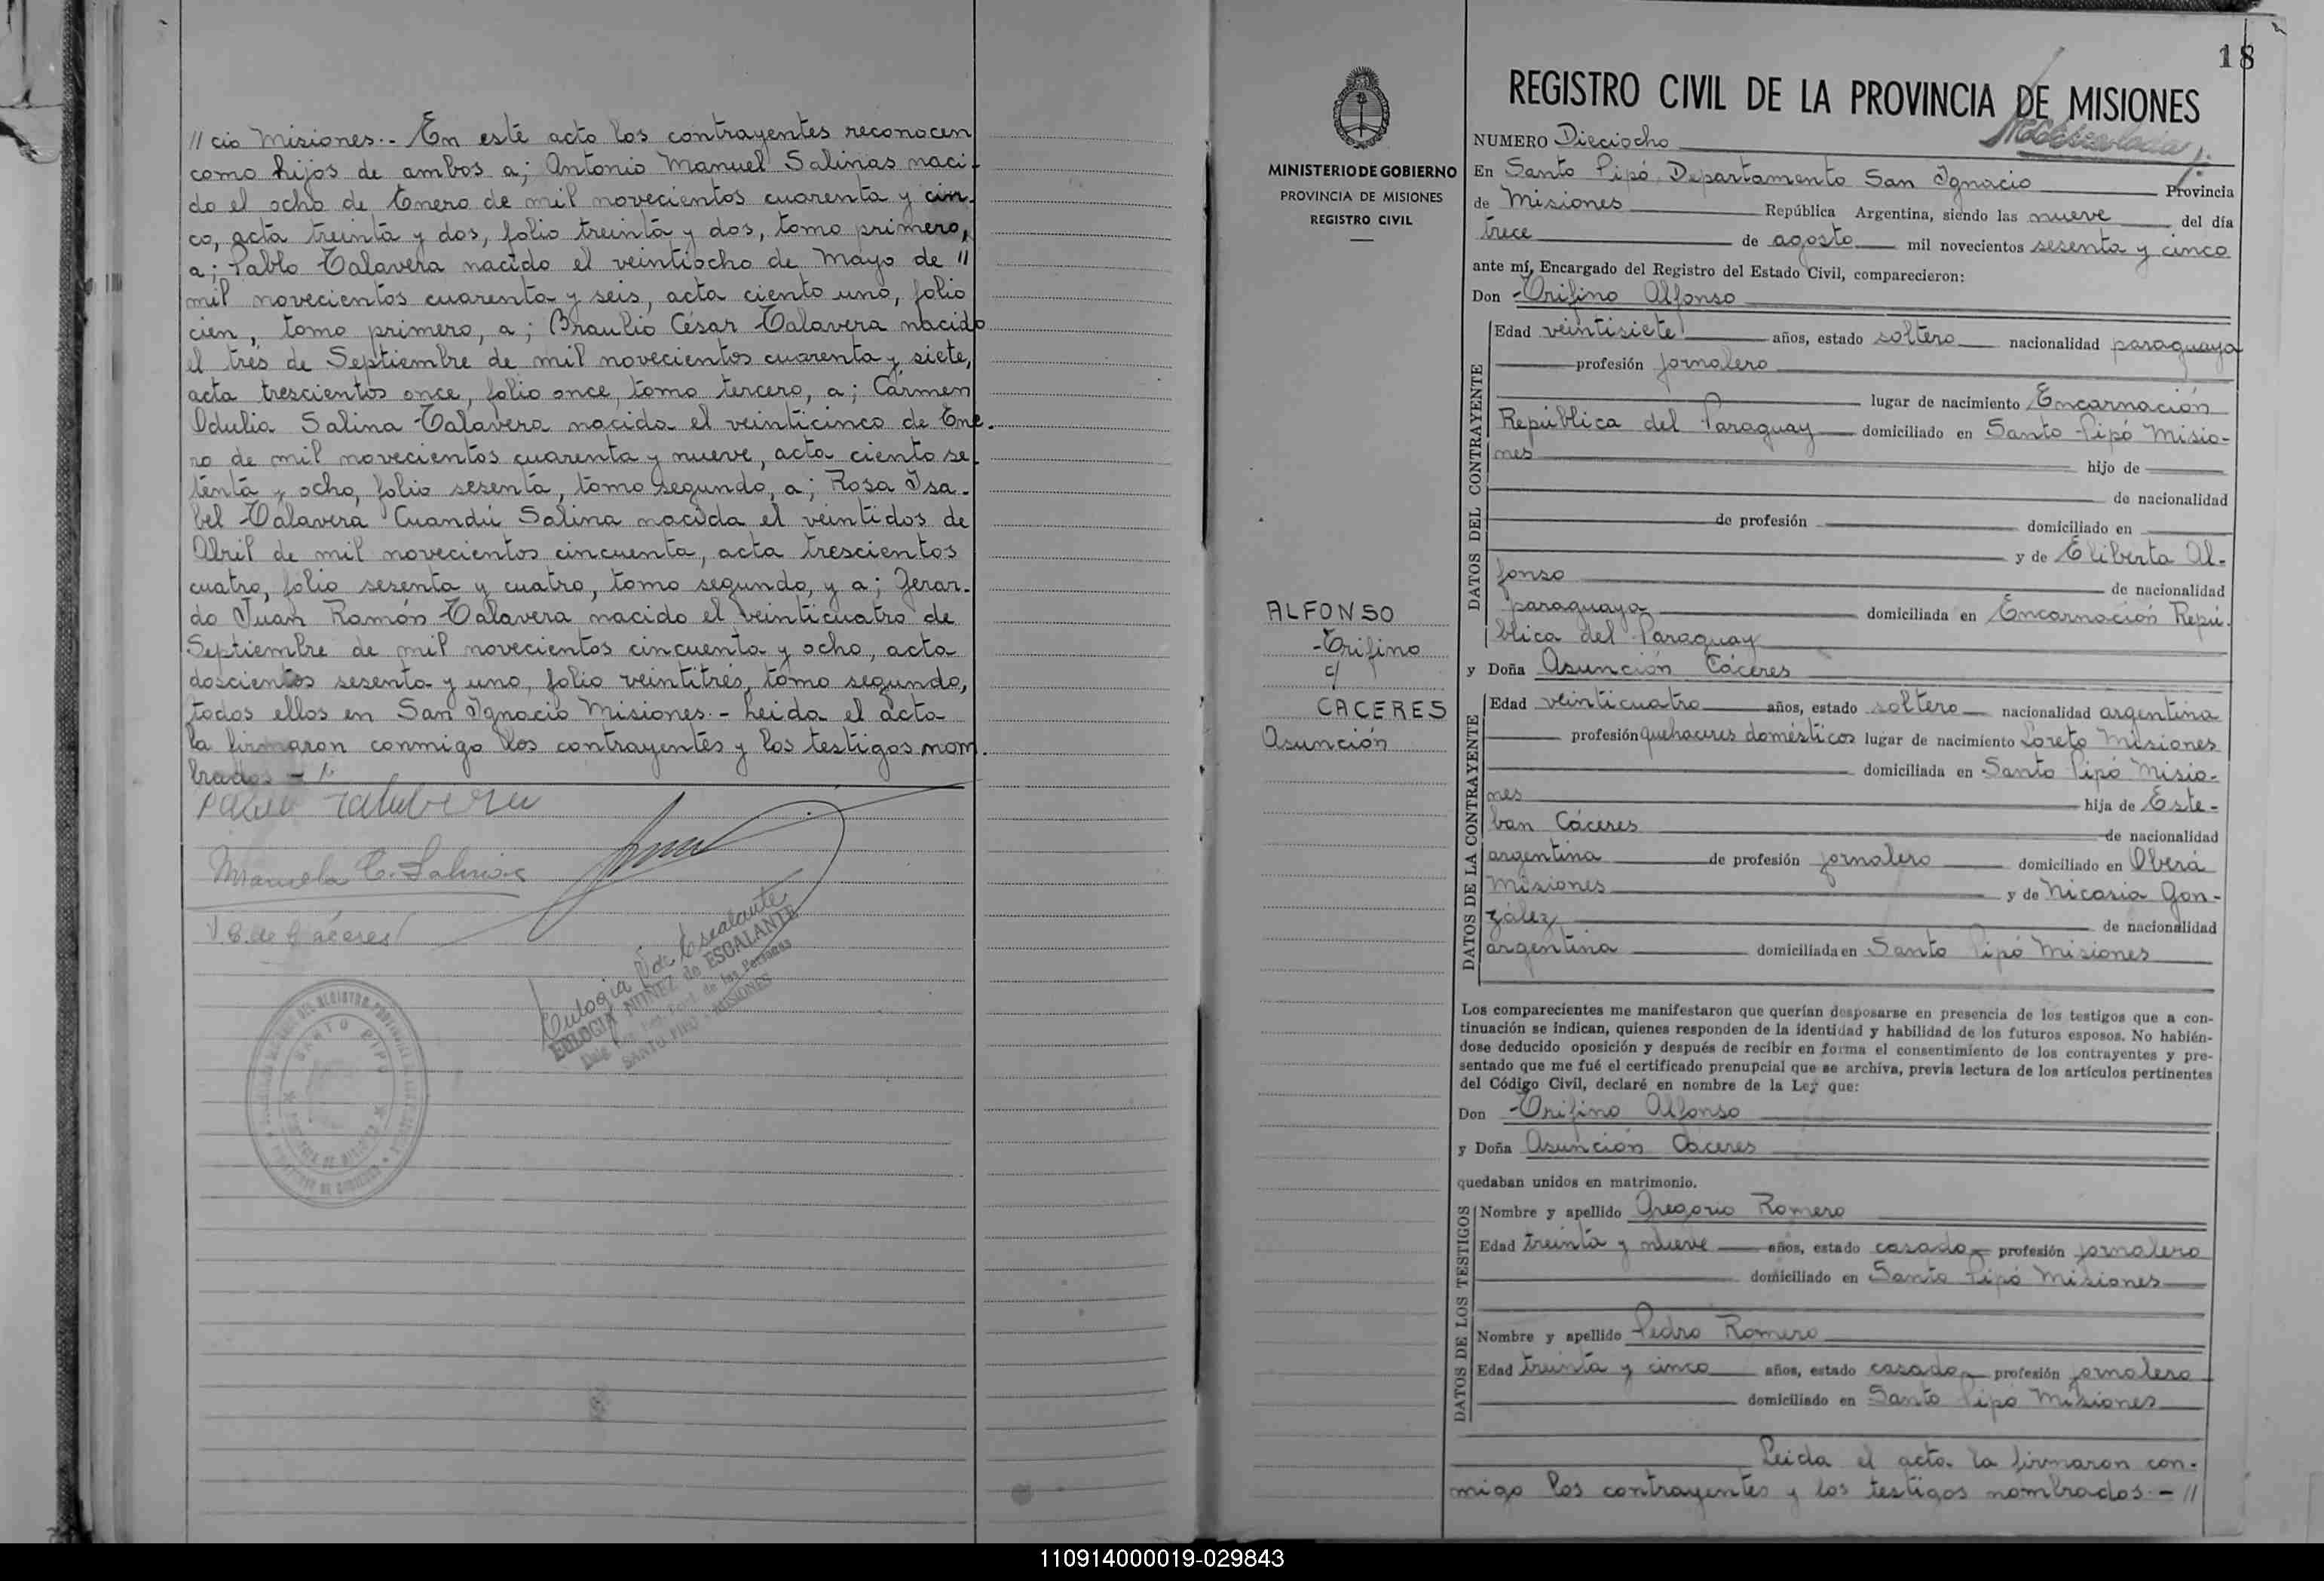 // cio Misiones.- En este acto los contrayentes reconocen
como hijos de ambos a; Antonio Manuel Salinas naci-
do el ocho de Enero de mil novecientos cuarenta y cin-
co, acta treinta y dos, folio treinta y dos, tomo primero,
a; Pablo Talavera nacido el veintiocho de Mayo de //
mil novecientos cuarenta y seis, acta ciento uno, folio
cien, tomo primero, a; Braulio César Talavera nacido
el tres de Septiembre de mil novecientos cuarenta y siete,
acta trescientos once, folio once, tomo tercero, a; Carmen
Odulia Salina Talavera nacida el veinticinco de Ene-
ro de mil novecientos cuarenta y nueve, acta ciento se-
tenta y ocho, folio sesenta, tomo segundo, a; Rosa Isa-
bel Talavera Cuandú Salina nacida el veintidos de
Abril de mil novecientos cincuenta, acta trescientos
cuatro, folio sesenta y cuatro, tomo segundo, y a; Gerar-
do Juan Ramón Talavera nacido el veinticuatro de
Septiembre de mil novecientos cincuenta y ocho, acta
doscientos sesenta y uno, folio veintitrés, tomo segundo,
todos ellos en San Ignacio Misiones.- Leida el acta
la firmaron conmigo los contrayentes y los testigos nom-
brados -/.
Pablo Talavera
Manuela C. Salinas
V. G. de Cáceres
Eulogia N de Escalante
EULOGIA NUÑEZ de ESCALANTE
de las Personas
SANTO PIPO - MISIONES
SANTO PIPÓ
18
MINISTERIO DE GOBIERNO
PROVINCIA DE MISIONES
REGISTRO CIVIL
ALFONSO
Trifino
c/
CACERES
Asunción
REGISTRO CIVIL DE LA PROVINCIA DE MISIONES
NUMERO Dieciocho
En Santo Pipó Departamento San Ignacio Provincia
de Misiones República Argentina, siendo las nueve del día
trece de agosto mil novecientos sesenta y cinco
ante mí, Encargado del Registro del Estado Civil, comparecieron:
Don Trifino Alfonso
DATOS DEL CONTRAYENTE
Edad veintisiete años, estado soltero nacionalidad paraguaya
profesión jornalero
lugar de nacimiento Encarnación
República del Paraguay domiciliado en Santo Pipó Misio-
nes hijo de
de nacionalidad
de profesión domiciliado en
y de Eliberta Al-
fonso de nacionalidad
paraguaya domiciliada en Encarnación Repú-
blica del Paraguay
y Doña Asunción Cáceres
DATOS DE LA CONTRAYENTE
Edad veinticuatro años, estado soltero nacionalidad argentina
profesión quehaceres domésticos lugar de nacimiento Loreto Misiones
domiciliada en Santo Pipó Misio-
nes hija de Este-
ban Cáceres de nacionalidad
argentina de profesión jornalero domiciliado en Oberá
Misiones y de Nicasia Gon-
zález de nacionalidad
argentina domiciliada en Santo Pipó Misiones
Los comparecientes me manifestaron que querían desposarse en presencia de los testigos que a con-
tinuación se indican, quienes responden de la identidad y habilidad de los futuros esposos. No habién-
dose deducido oposición y después de recibir en forma el consentimiento de los contrayentes y pre-
sentado que me fué el certificado prenupcial que se archiva, previa lectura de los artículos pertinentes
del Código Civil, declaré en nombre de la Ley que:
Don Trifino Alfonso
y Doña Asunción Cáceres
quedaban unidos en matrimonio.
DATOS DE LOS TESTIGOS
Nombre y apellido Gregorio Romero
Edad treinta y nueve años, estado casado profesión jornalero
domiciliado en Santo Pipó Misiones
Nombre y apellido Pedro Romero
Edad treinta y cinco años, estado casado profesión jornalero
domiciliado en Santo Pipó Misiones
Leida el acta la firmaron con-
migo los contrayentes y los testigos nombrados.- //
110914000019-029843